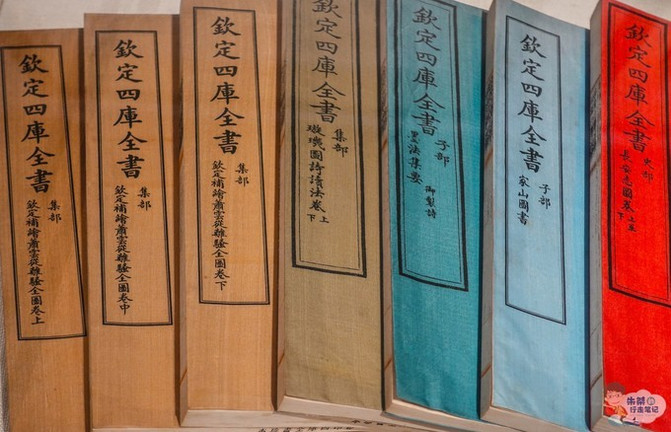 欽定四庫全書
集部
欽定補繪蕭雲從離騷全圖卷上
欽定四庫全書
集部
欽定補繪蕭雲從離騷全圖卷中
欽定四庫全書
集部
欽定補繪蕭雲從離騷全圖卷下
欽定四庫全書
集部
璇璣圖詩讀法卷上
下
欽定四庫全書
子部
墨法集要
御製詩
欽定四庫全書
子部
家山圖書
欽定四庫全書
史部
長安志圖卷上
下
朱燊的
行走笔记